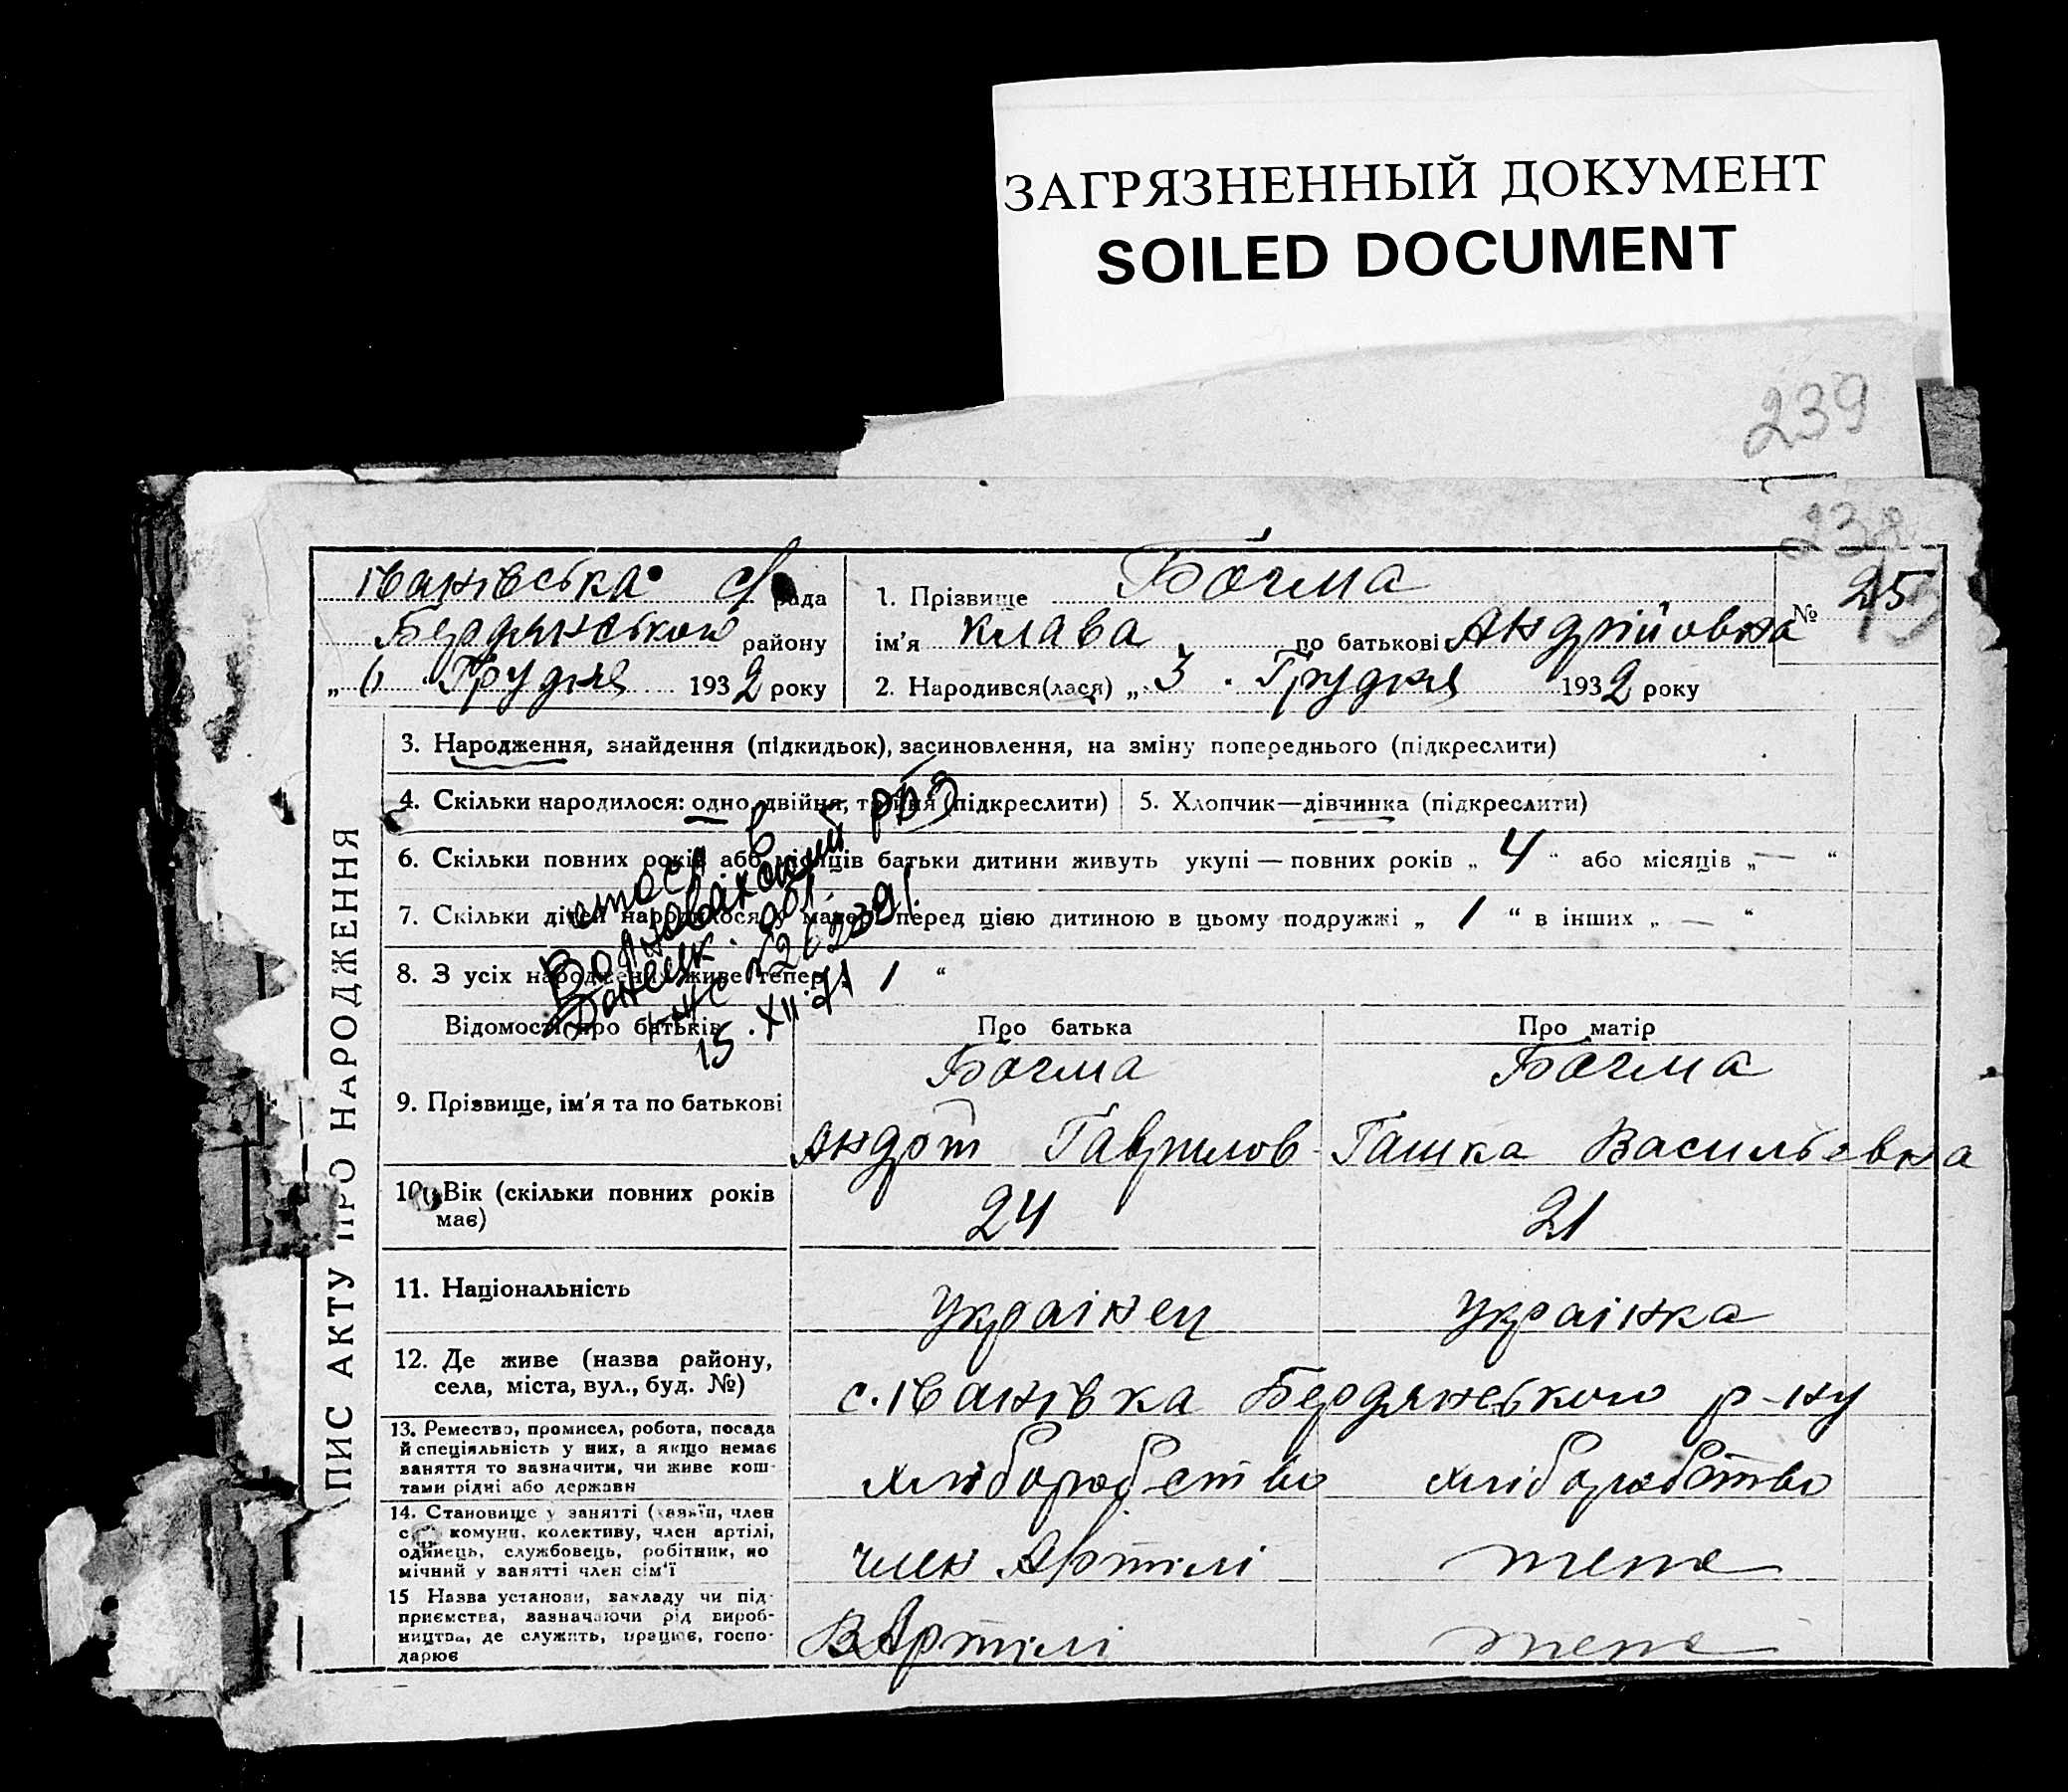 ЗАГРЯЗНЕННЫЙ ДОКУМЕНТ
SOILED DOCUMENT
239
238
Іванівська с/рада
Бердянського району
"6" Грудня 1932 року
1. Прізвище Бочма
ім'я Клава по батькові Андрійовна
№ 25
2. Народився(лася) „ 3 " Грудня 1932 року
ПИС АКТУ ПРО НАРОДЖЕННЯ
3. Народження, знайдення (підкидьок), засиновлення, на зміну попереднього (підкреслити)
4. Скільки народилося: одно, двійня, трійня (підкреслити)
5. Хлопчик—дівчинка (підкреслити)
6. Скільки повних років або місяців батьки дитини живуть укупі — повних років „ 4 " або місяців „ — "
7. Скільки дітей народилося у матері перед цією дитиною в цьому подружжі „ 1 " в інших „ — "
8. З усіх народжених живе тепер „ 1 "
в
Волновахский рбз
Донецк. обл.
15.XII.71
Відомості про батьків
Про батька
Про матір
9. Прізвище, ім'я та по батькові
Бочма
Андрій Гаврилов
Бочма
Гашка Васильевна
10. Вік (скільки повних років має)
24
21
11. Національність
українец
українка
12. Де живе (назва району,
села, міста, вул., буд. №)
с. Іванівка Бердянського р-ну
13. Ремество, промисел, робота, посада
й спеціяльність у них, а якщо немає
заняття то зазначити, чи живе кош-
тами рідні або держави
хліборобство
хліборобство
14. Становище у занятті (хазяїн, член
с комуни, колективу, член артілі,
одинець, службовець, робітник, по
мічний у занятті член сім'ї
член Артілі
тепе
15 Назва установи, закладу чи під-
приємства, зазначаючи рід вироб-
ництва, де служить, працює, госпо-
дарює
В Артілі
тепе